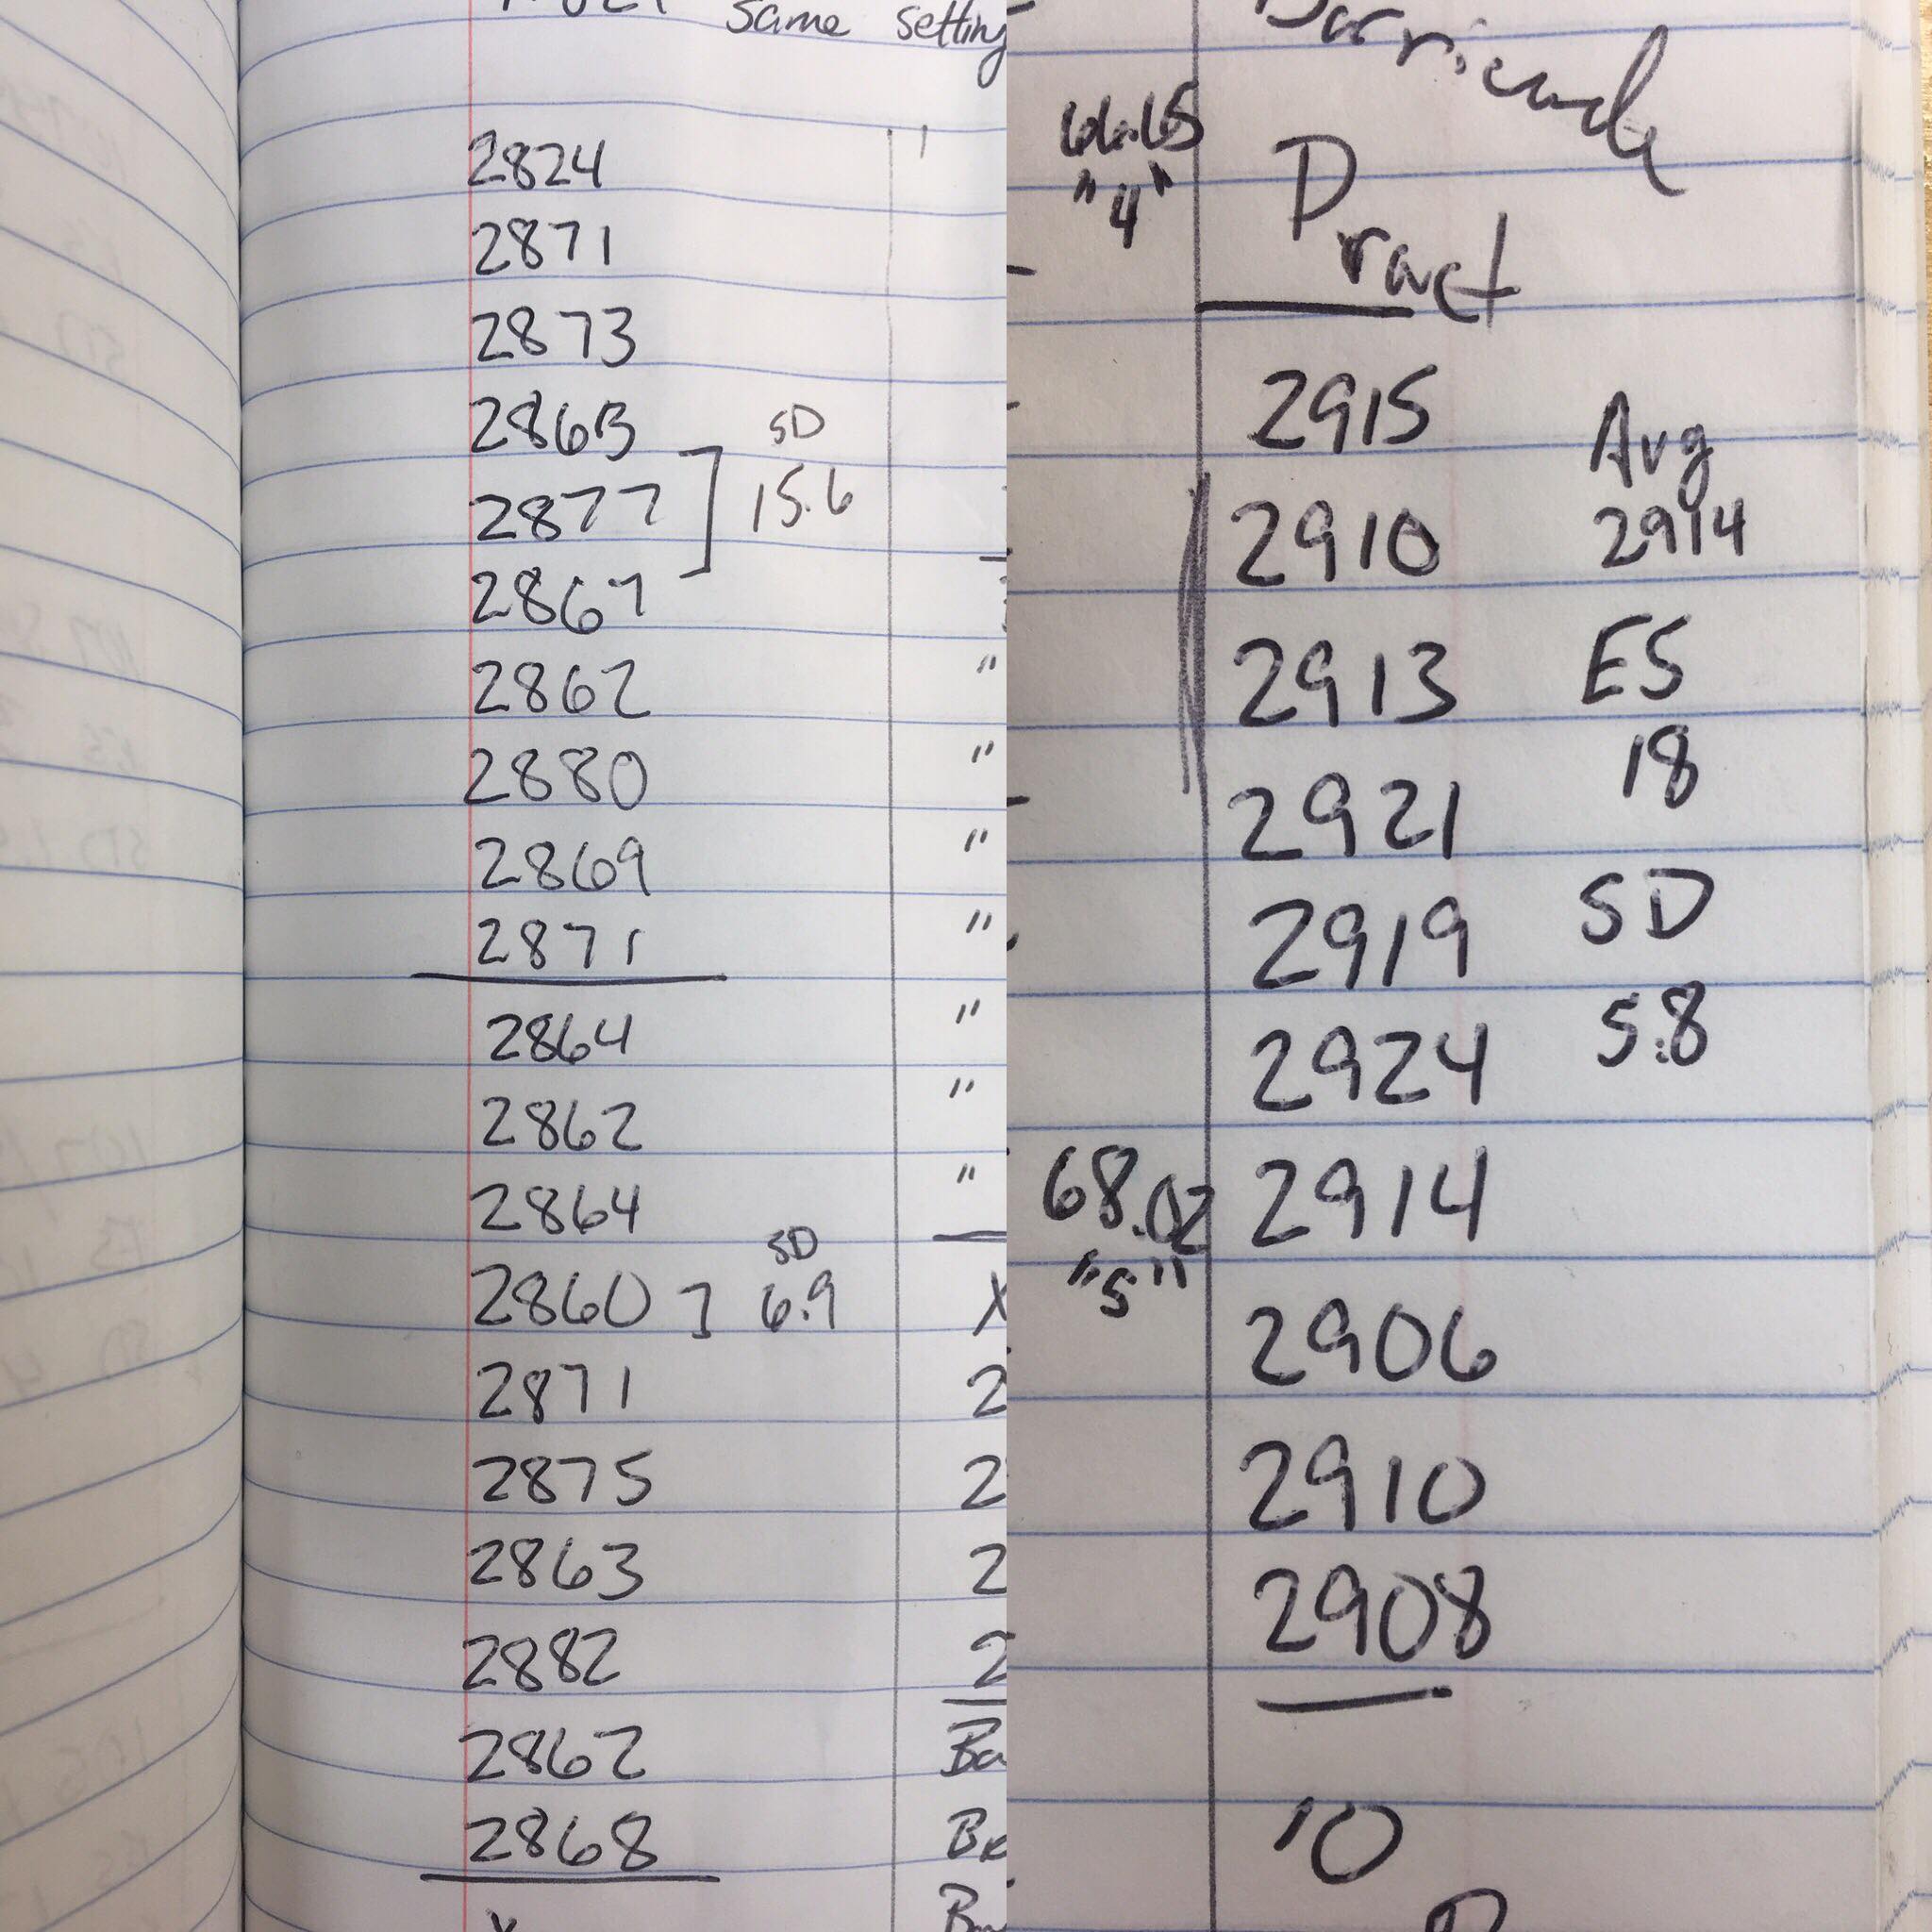 same setting
2824
2871
2873
2863
SD
2877 ] 15.6
2867
2862
"
2880
"
2869
"
2871
"
2864
"
2862
"
2864
"
SD
2860 ] 6.9
X
2871
2
2875
2
2863
2
2882
2
2862
Ba
2868
Barricade
66.65
"4"
Pract
2915
Avg
2910
2914
2913
ES
18
2921
2919
SD
2924
5.8
68.02
2914
"5"
2906
2910
2908
10